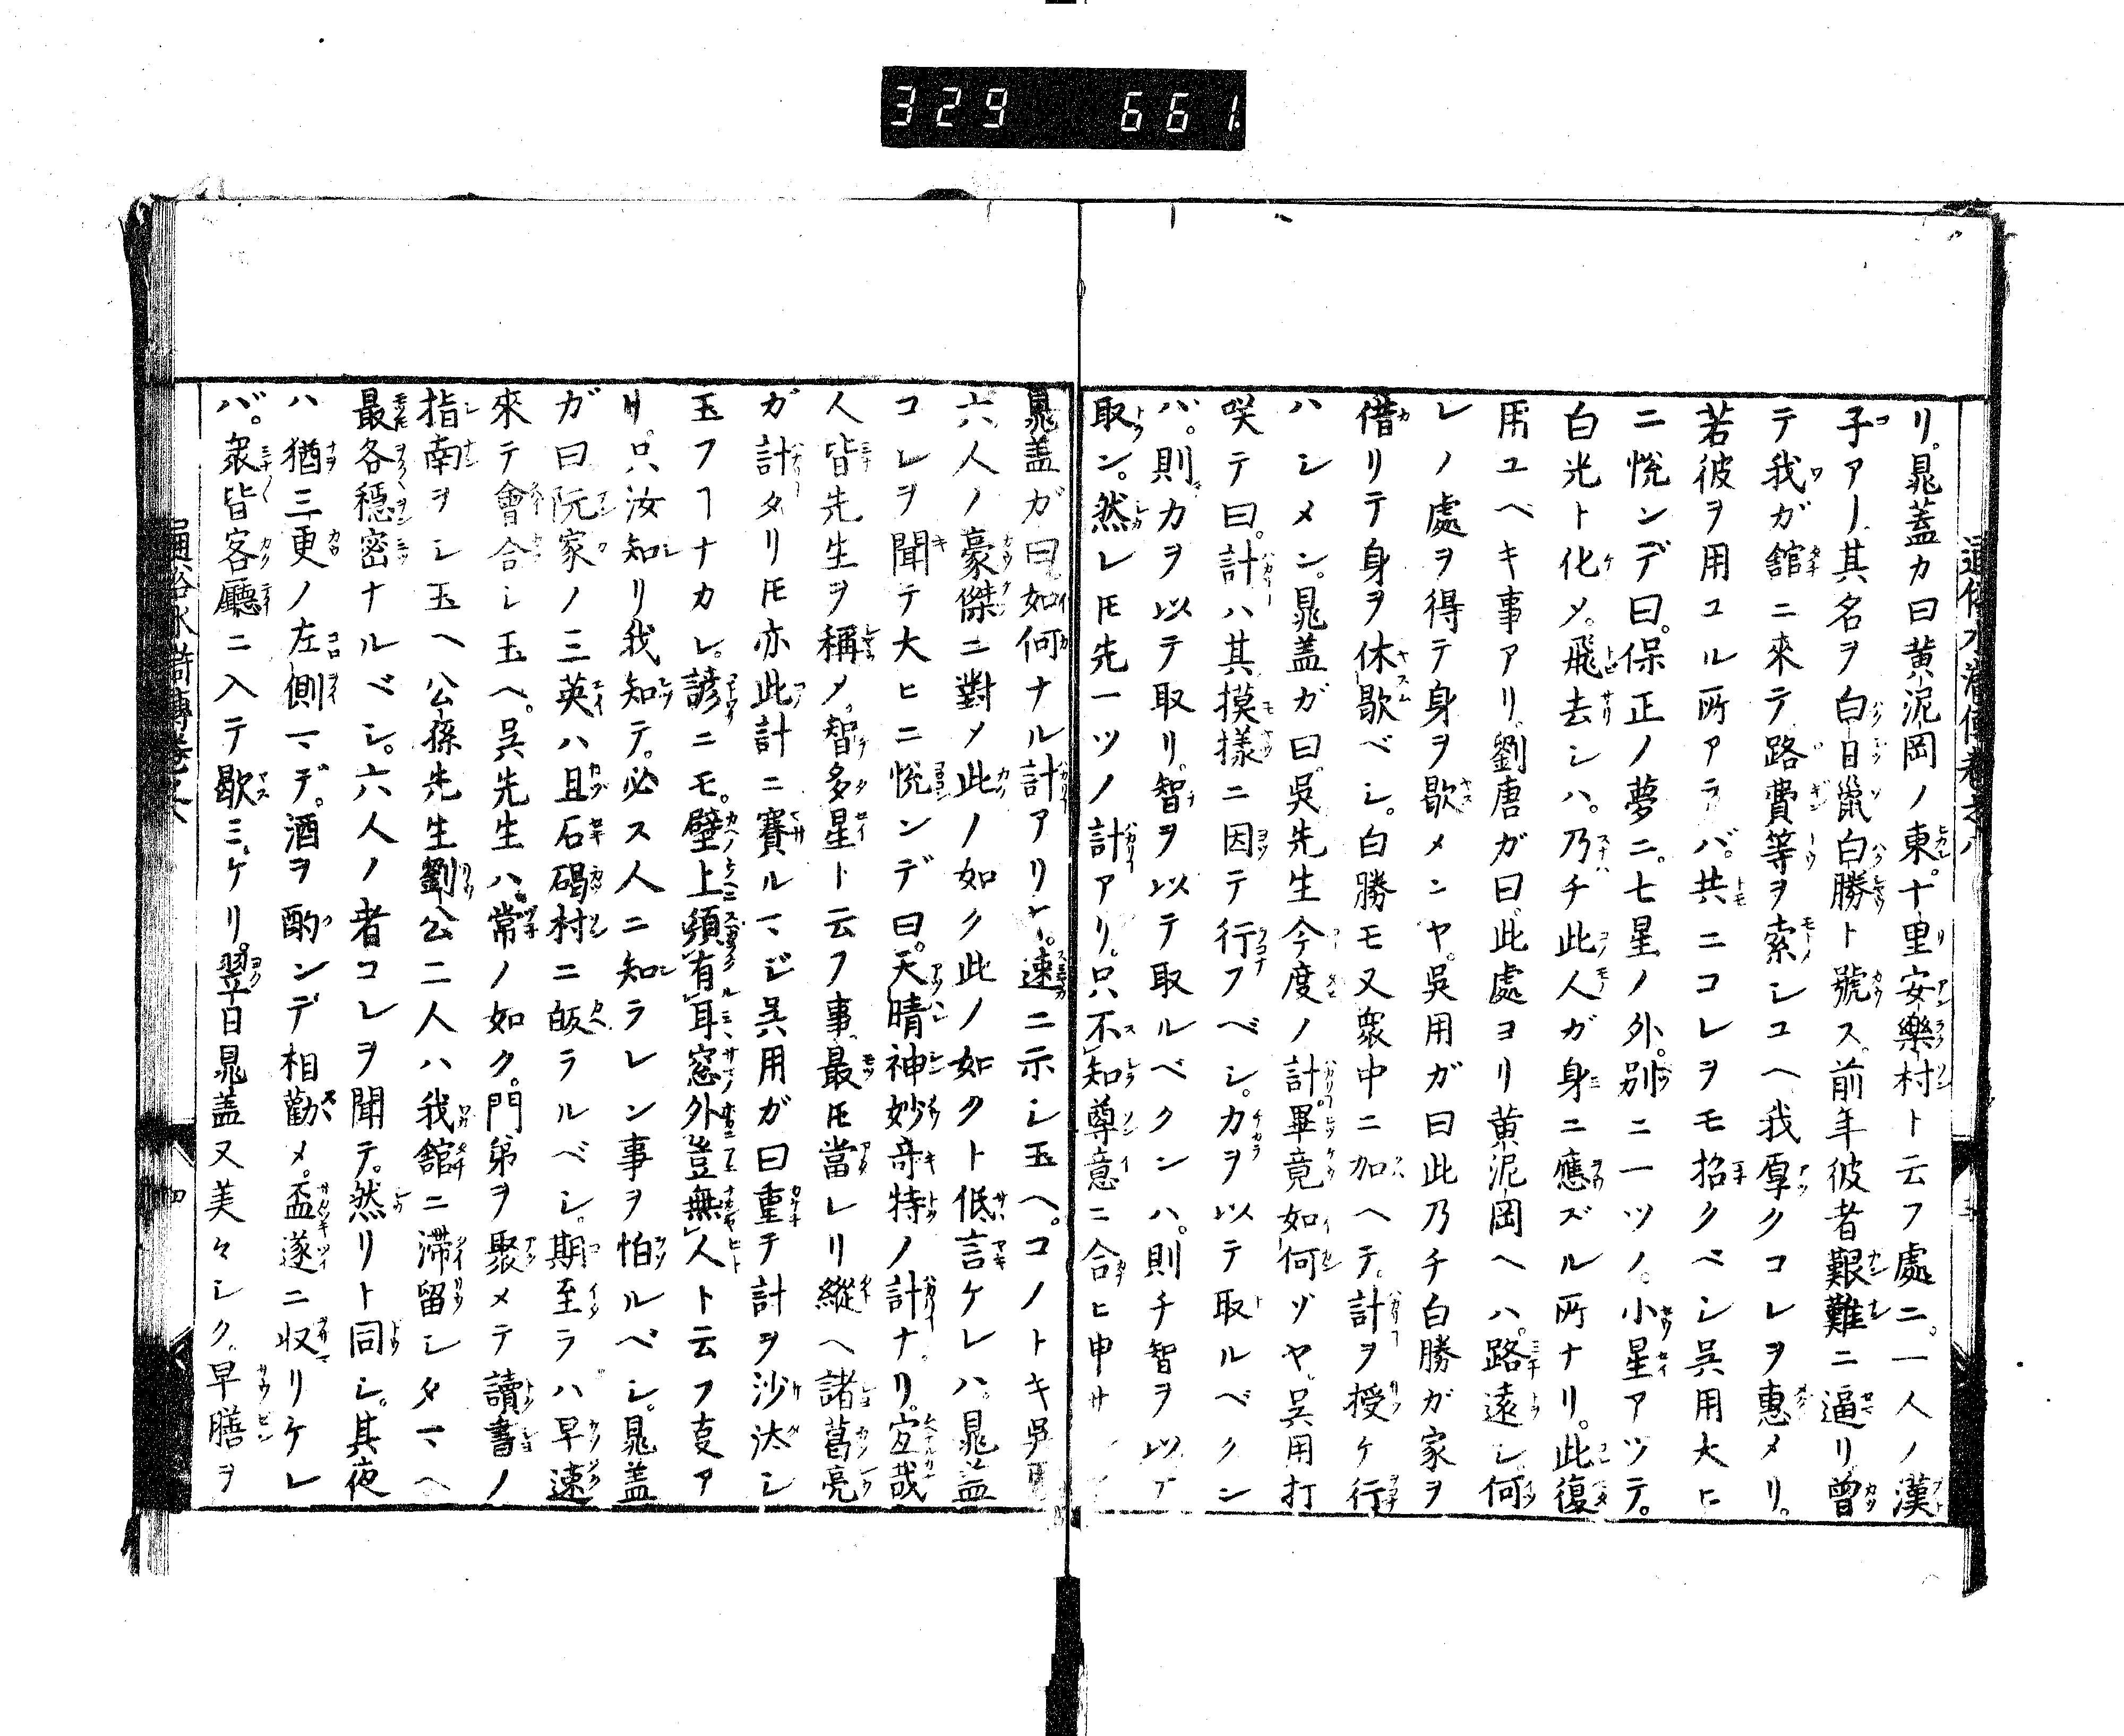 329 661
リ。晁蓋カ曰黄泥岡ノ東。十里安樂村ト云フ處ニ。一人ノ漢
子アー。其名ヲ白日鼠白勝ト號ス。前年彼者艱難ニ逼リ曾
テ我ガ舘ニ來テ路費等ヲ索シユヘ我厚クコレヲ惠メリ。
若彼ヲ用ユル所アラバ。共ニコレヲモ招クベシ呉用大ヒ
ニ悦ンデ曰。保正ノ夢ニ。七星ノ外。別ニ一ツノ。小星アツテ。
白光ト化メ。飛去シハ。乃チ此人ガ身ニ應ズル所ナリ。此復
用ユベキ事アリ劉唐ガ曰。此處ヨリ黄泥岡ヘハ。路遠シ何
レノ處ヲ得テ身ヲ歇メンヤ。呉用ガ曰此乃チ白勝ガ家ヲ
借リテ身ヲ休歇ベシ。白勝モ又衆中ニ加ヘテ。計ヲ授ケ行
ハシメン。晁蓋ガ曰。呉先生今度ノ計。畢竟如何ヅヤ。呉用打
咲テ曰。計ハ其摸樣ニ因テ行フベシ。力ヲ以テ取ルベクン
バ。則力ヲ以テ取リ。智ヲ以テ取ルベクンハ。則チ智ヲ以テ
取ン。然レ𪜈先一ツノ計アリ。只不知尊意ニ合ヒ申サ
晁蓋ガ曰。如何ナル計アリヤ。速ニ示シ玉ヘ。コノトキ呉用
六人ノ豪傑ニ對メ此ノ如ク此ノ如クト低言ケレハ。晁蓋
コレヲ聞テ大ヒニ悦ンデ曰。天晴神妙竒特ノ計ナリ。宜哉
人皆先生ヲ稱メ。智多星ト云フ事。最𪜈當レリ縱ヘ諸葛亮
ガ計タリ𪜈亦此計ニ賽ルマジ呉用ガ曰重テ計ヲ沙汰シ
玉フヿナカレ。諺ニモ。壁上須有耳窓外豈無人ト云フ㕝ア
リ。只汝知リ我知テ。必ス人ニ知ラレン事ヲ怕ルベシ。晁蓋
ガ曰阮家ノ三英ハ且石碣村ニ皈ラルベシ。期至ラハ早速
來テ會合シ玉ヘ。呉先生ハ常ノ如ク。門弟ヲ聚メテ讀書ノ
指南ヲシ玉ヘ公孫先生劉公二人ハ我舘ニ滞留シタマヘ
最各穩密ナルベシ。六人ノ者コレヲ聞テ。然リト同シ。其夜
ハ猶三更ノ左側マデ。酒ヲ酌ンデ相勸メ。盃遂ニ収リケレ
バ。衆皆客廳ニ入テ歇ミケリ。翌日晁蓋又美々シク。早膳ヲ